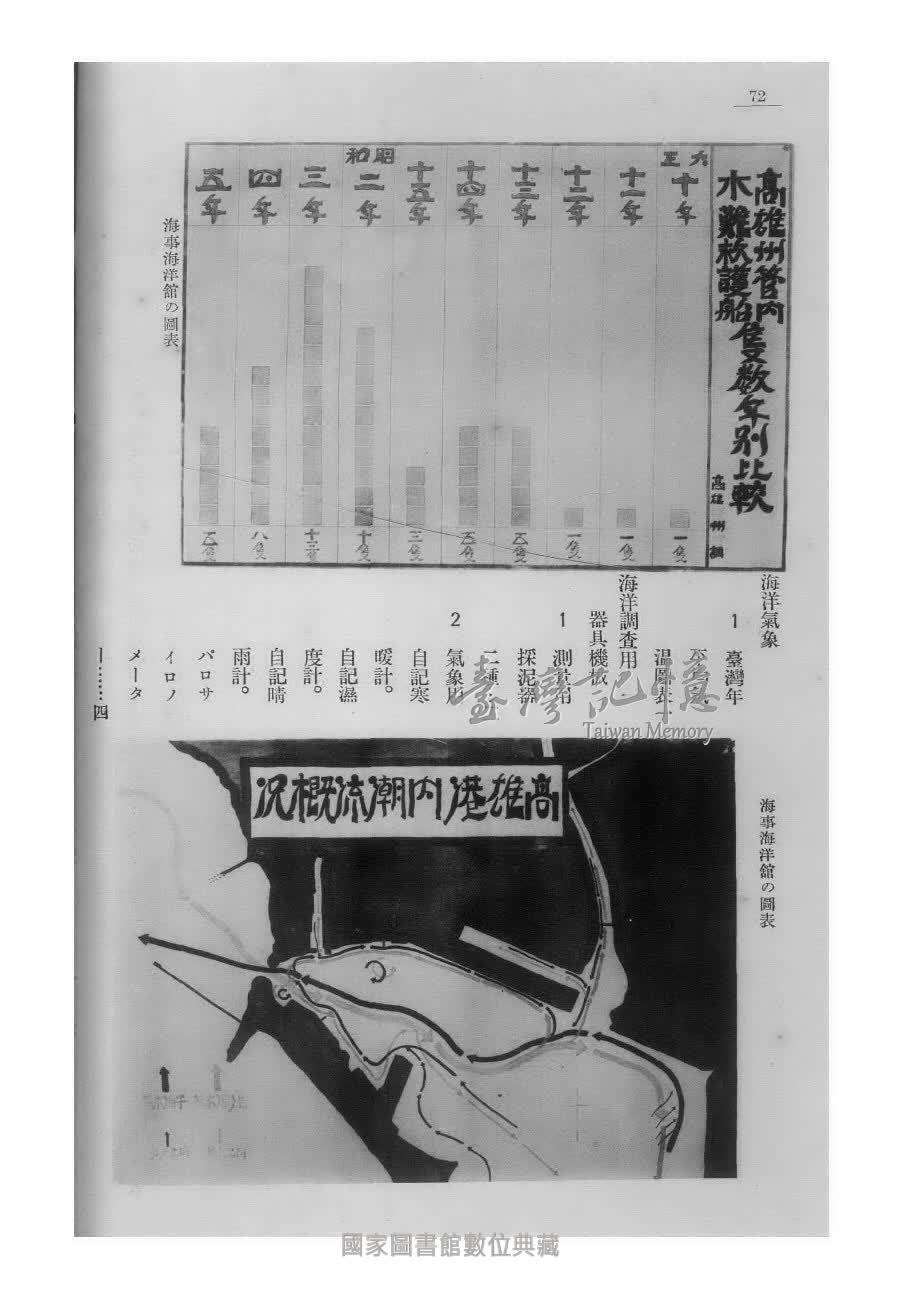 72
高雄州管内
水難救護船
隻数年別比較
高雄州調
大正
十年
十一年
十二年
十三年
十四年
十五年
昭和
二年
三年
四年
五年
一隻
一隻
一隻
五隻
五隻
三隻
十隻
十三隻
八隻
五隻
海事海洋館の圖表
海洋氣象
1 臺灣年
温圖表
海洋調査用
器具機械
1 測量用
採泥器
二種
2 氣象用
自記寒
暖計。
自記濕
度計。
自記晴
雨計。
バロサ
イロノ
メータ
ー……四
臺灣記憶
Taiwan Memory
高雄港内潮流概況
海事海洋館の圖表
國家圖書館數位典藏